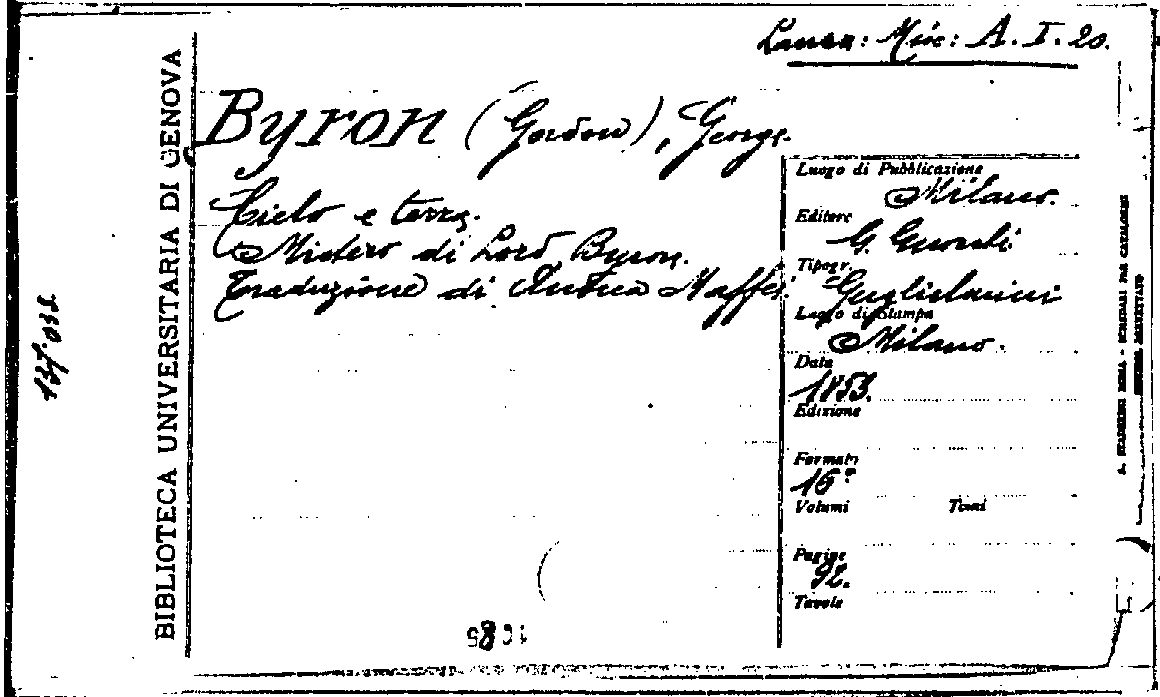 Lanza: Misc: A. I. 20.
Byron (Gordon), George.
Cielo e terra.
Mistero di Lord Byron.
Traduzione di Andrea Maffei.
Luogo di Pubblicazione
Milano.
Editore
G. Gnocchi
Tipogr.
Guglielmini
Luogo di Stampa
Milano.
Data
1853.
Edizione
Formato
16º
Volumi Tomi
Pagine
92.
Tavole
BIBLIOTECA UNIVERSITARIA DI GENOVA
137.032